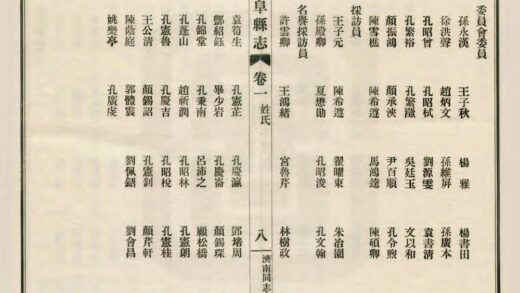 委員會委員
孫永漢 王子秋 楊雅 楊書田
徐洪聲 趙炳文 孫維屏 孫廣本
孔昭曾 孔昭栻 劉源雯 袁書清
孔繁裕 孔繁瀓 吳廷玉 文以和
顏振鴻 顏承浹 尹百順 孔令煦
陳雪樵 陳希遵 馬鴻逵 陳碩卿
採訪員
王子元 陳希遵 翟曜東 朱冶園
孫殿卿 夏懋勛 孔昭浚 孔文翰
名譽採訪員
許雲卿 王鴻緒 宮魯芹 林樹政
阜縣志 卷一 姓氏 八 濟南同志
袁荀生 孔憲芷 孔慶瀛 鄧培周
鄭紹鈺 畢少岩 孔慶崙 顏錫琛
孔錦堂 孔秉南 呂沛之 顧松橋
孔蓬山 趙新潤 孔昭林 孔憲朗
孔憲魯 孔慶吉 孔昭棁 孔憲桂
王公清 顏錫詔 孔憲釗 顏芹軒
陳蔭庭 郭體震 劉佩鍇 劉會昌
姚樂亭 孔廣虔